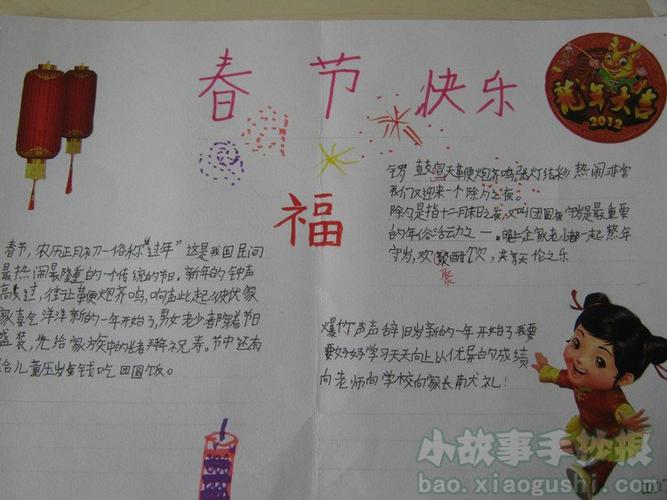 春节快乐
龙年大吉
2012
福
春节，农历正月初一俗称“过年”这是我国民间
最热闹最隆重的一个传统的节。新年的钟声
过，往让革便炮齐鸣，响声此起彼伏家
家喜气洋洋新的一年开始了，男女老少都穿着节日
盛装，先给家族中的老拜年祝寿。节中还有
给儿童压岁钱吃团圆饭。
锣鼓喧天革便炮齐鸣张灯结彩热闹非常
我们又迎来一个除夕之夜。
除夕是指十二月末日之夜又叫团圆夜守岁是最重要
的年俗活动之一。晚上全家老小都一起熬年
守岁，欢聚酣饮，共享天伦之乐
聚
爆竹声声辞旧岁新的一年开始了我要
要好好学习天天向上以优异的成绩
向老师向学校向家长献礼！
小故事手抄报
bao.xiaogushi.com